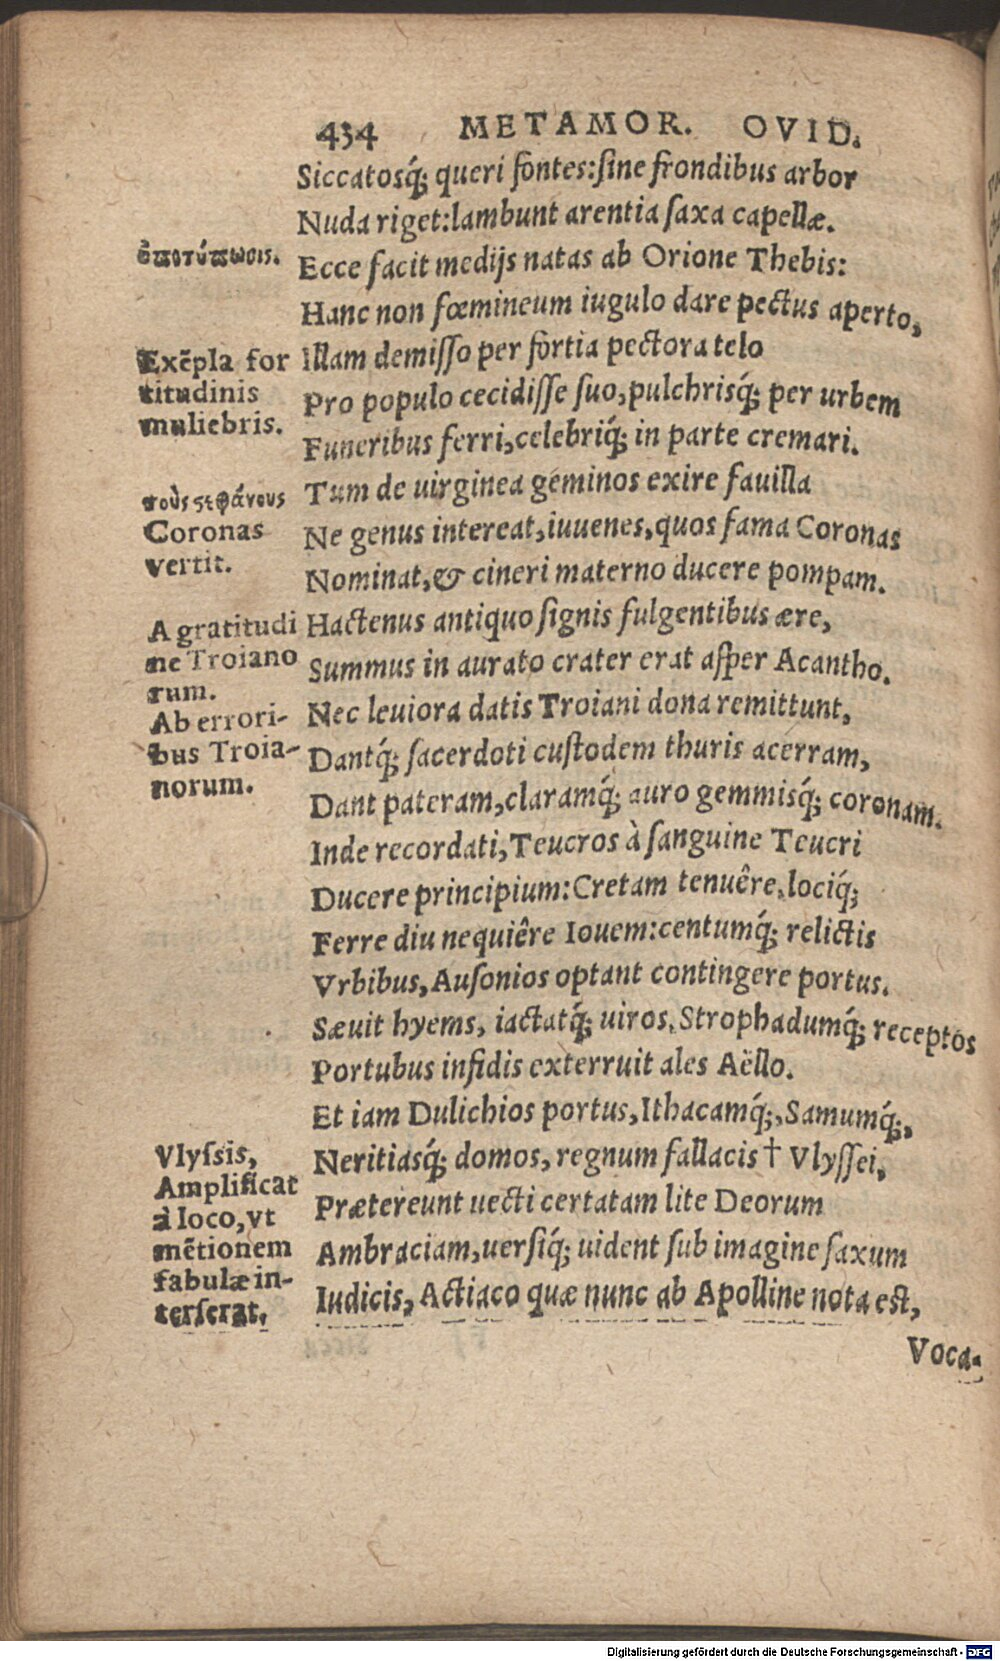 434 METAMOR. OVID.
Siccatosq́; queri fontes:ſine frondibus arbor
Nuda riget:lambunt arentia ſaxa capellæ.
ὑποτύπωσις.
Ecce facit medijs natas ab Orione Thebis:
Hanc non fœmineum iugulo dare pectus aperto,
Exẽpla for
titudinis
muliebris.
Illam demiſſo per fortia pectora telo
Pro populo cecidiſſe ſuo,pulchrisq́; per urbem
Funeribus ferri,celebriq́; in parte cremari.
τοὺς στεφάνους
Coronas
vertit.
Tum de uirginea geminos exire fauilla
Ne genus intereat,iuuenes,quos fama Coronas
Nominat,& cineri materno ducere pompam.
A gratitudi
ne Troiano
rum.
Ab errori-
bus Troia-
norum.
Hactenus antiquo ſignis fulgentibus ære,
Summus in aurato crater erat aſper Acantho.
Nec leuiora datis Troiani dona remittunt,
Dantq́; ſacerdoti cuſtodem thuris acerram,
Dant pateram,claramq́; auro gemmisq́; coronam.
Inde recordati,Teucros à ſanguine Teucri
Ducere principium:Cretam tenuêre,lociq́;
Ferre diu nequiêre Iouem:centumq́; relictis
Vrbibus,Auſonios optant contingere portus.
Sæuit hyems, iactatq́; uiros,Strophadumq́; receptos
Portubus infidis exterruit ales Aëllo.
Et iam Dulichios portus,Ithacamq́;,Samumq́;,
Vlyſsis,
Amplificat
à loco,vt
mẽtionem
fabulæ in-
terſerat.
Neritiasq́; domos, regnum fallacis † Vlyſſei,
Prætereunt uecti certatam lite Deorum
Ambraciam,uerſiq́; uident ſub imagine ſaxum
Iudicis, Actiaco quæ nunc ab Apolline nota eſt,
Voca-
Digitalisierung gefördert durch die Deutsche Forschungsgemeinschaft - DFG